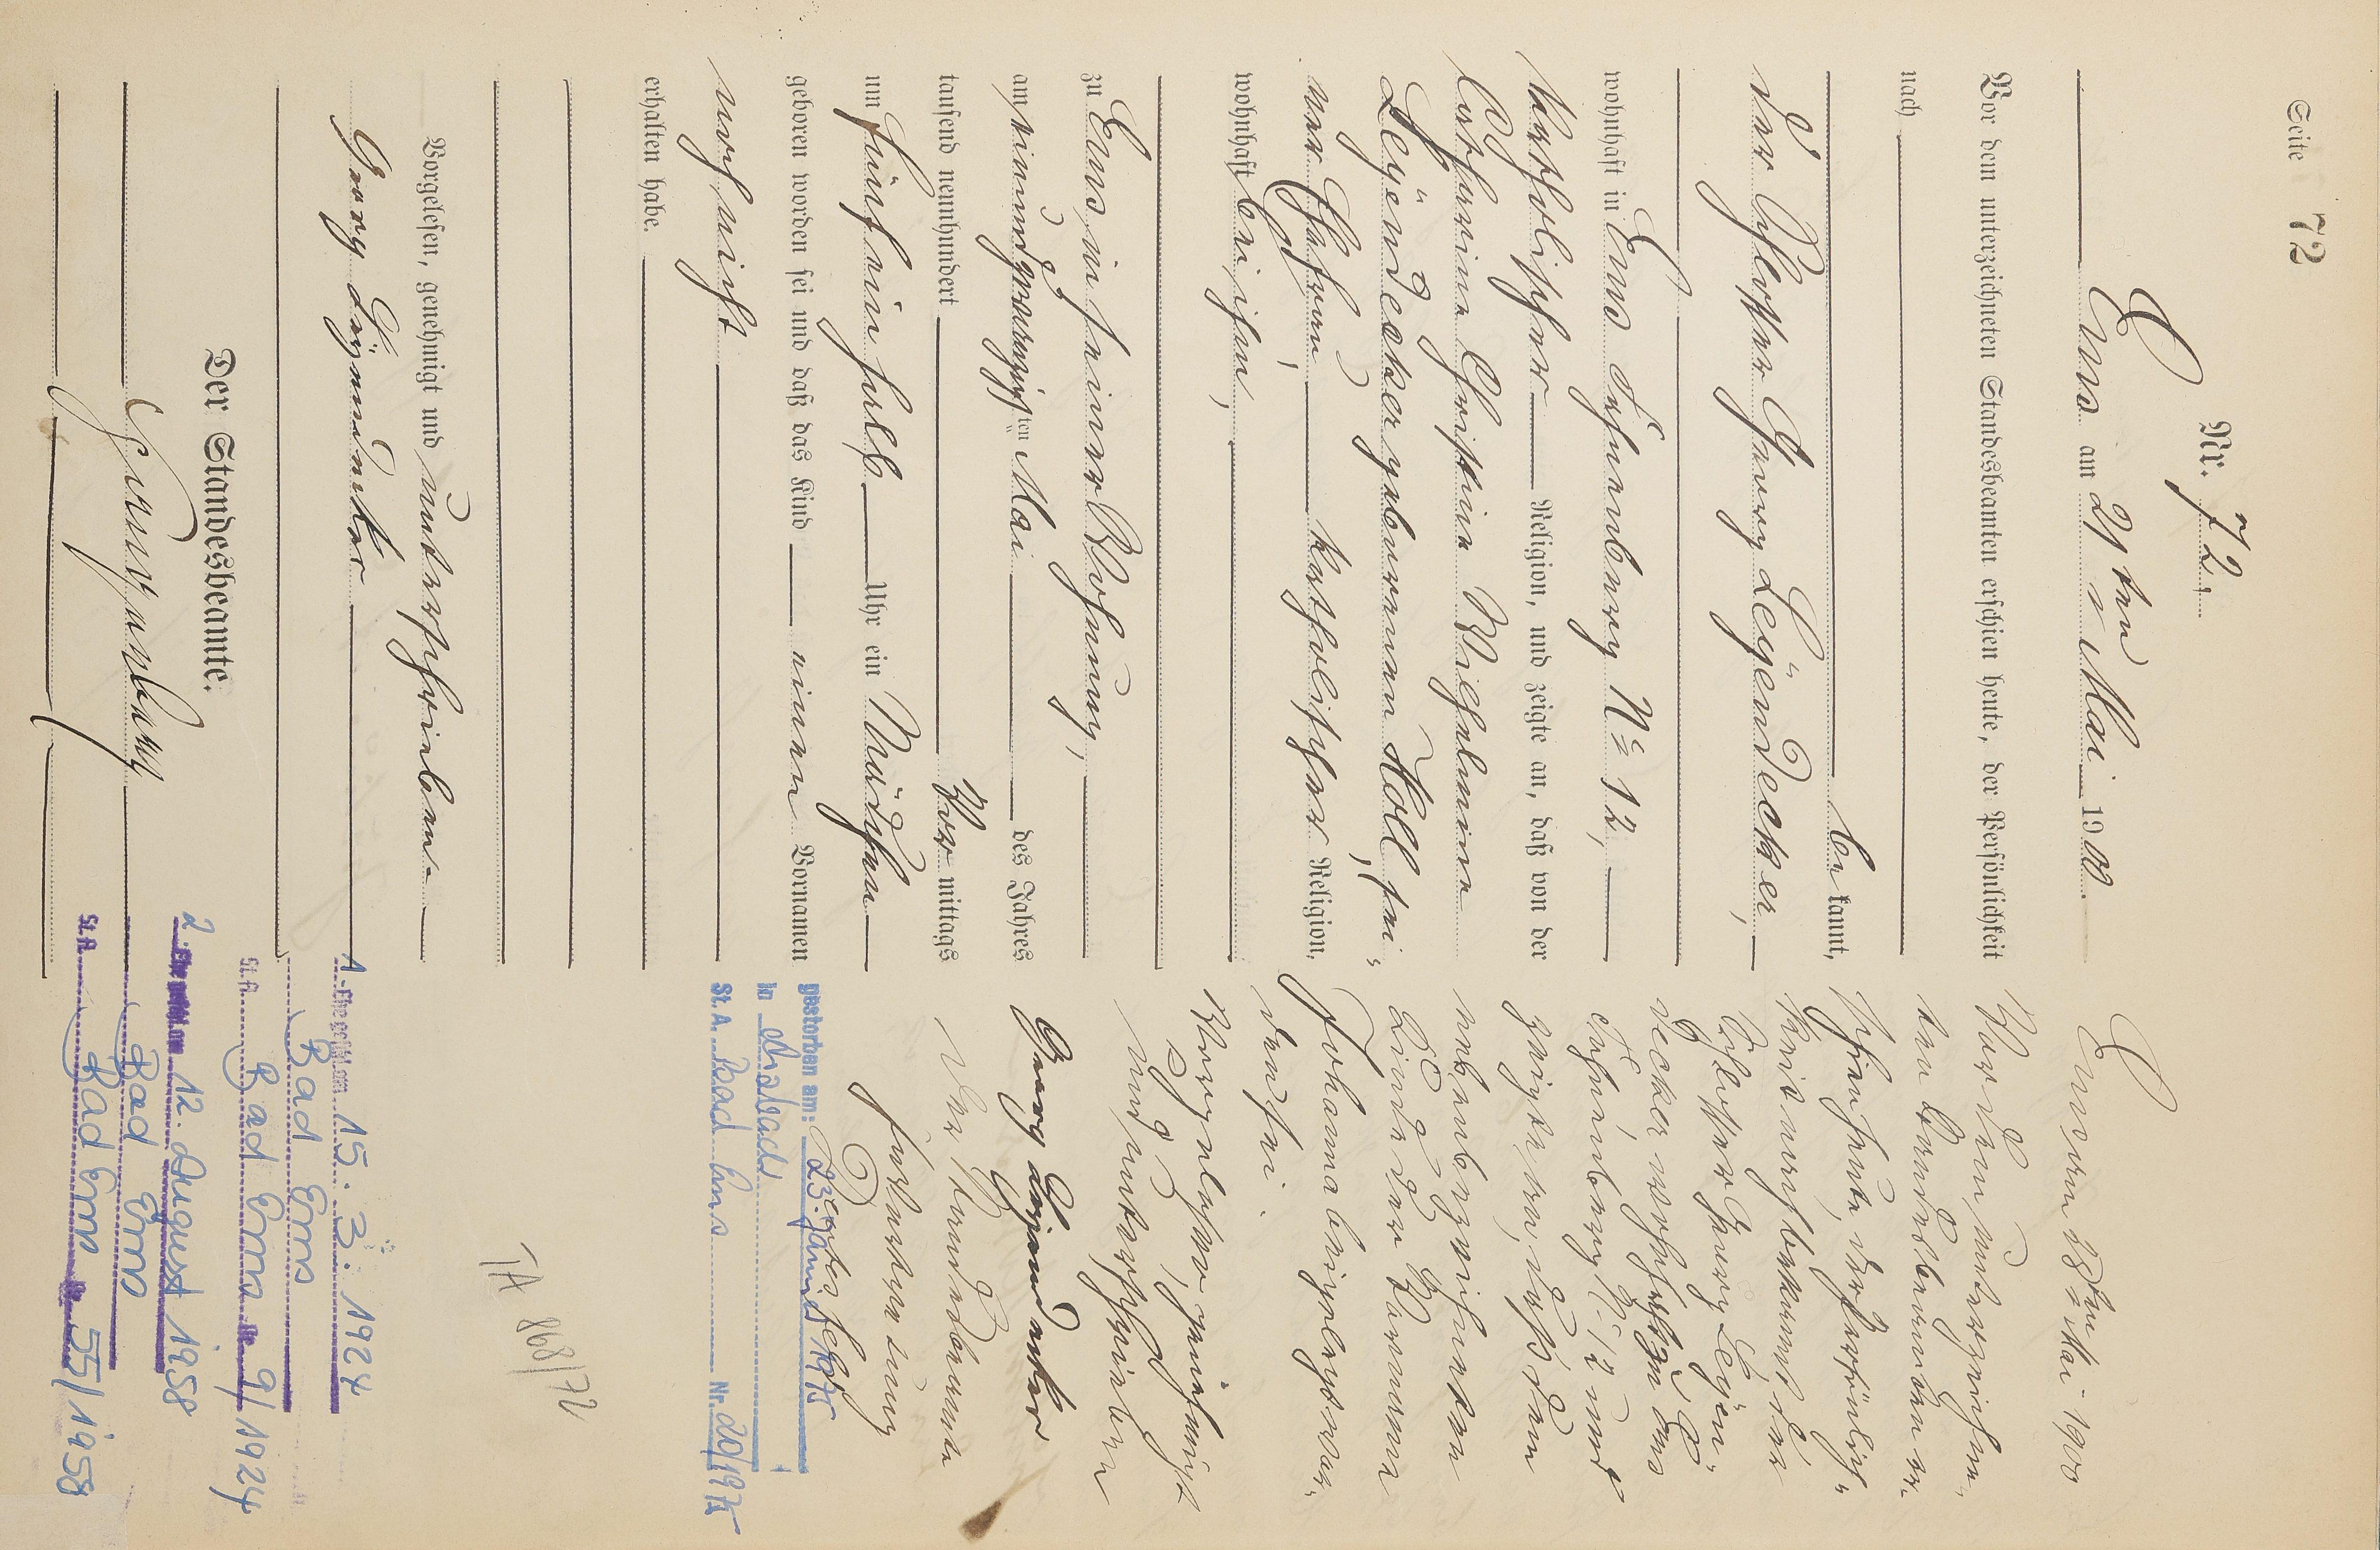 Seite 72
Nr. 72.
Ems am 21ten Mai 1900.
Vor dem unterzeichneten Standesbeamten erschien heute, der Persönlichkeit
nach
bekannt,
der Schlosser Georg Legendecker,
wohnhaft in Ems Hühnerberg No 12,
katholischer Religion, und zeigte an, daß von der
Catharina Christina Wilhelmine
Legendecker geborenen Holl, sei-
ner Ehefrau, katholischer Religion,
wohnhaft bei ihm,
zu Ems in seiner Wohnung,
am einundzwanzigsten Mai des Jahres
tausend neunhundert Vormittags
um fünf ein halb Uhr ein Mädchen
geboren worden sei und daß das Kind einen Vornamen
noch nicht
erhalten habe.
Vorgelesen, genehmigt und unterschrieben
Georg Legendecker
Der Standesbeamte.
Ems den 28ten Mai 1900
Vor dem unterzeichne-
ten Standesbeamten er-
schien heute, der Persönlich-
keit nach bekannt der
Schlosser Georg Legen-
decker wohnhaft zu Ems
No 12 und
zeigte an, daß dem
nebenbezeichneten
Kinde der Vorname
Johanna beigelegt wor-
den sei.
Vorgelesen, genehmigt
und unterschrieben
Georg Legendecker
Der Standesbeamte
gestorben am: 23. Januar 1975
in
St. A. Bad Ems Nr. 20/1975
72/898 AT
1. Eheschl. am 15. 3. 1924
Bad Ems
St. A. Bad Ems Nr. 9/1924
2. Eheschl. am 12. August 1958
Bad Ems
St. A. Bad Ems Nr. 55/1958